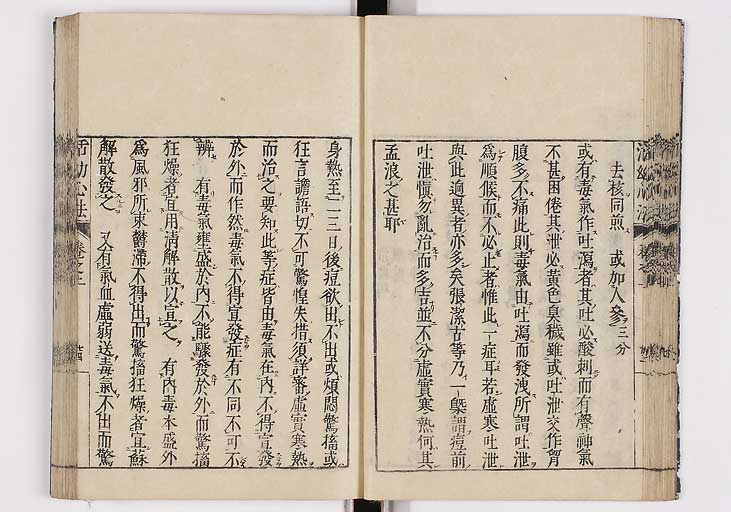 去核同煎　或加人參三分
或有毒氣作吐瀉者其吐必酸刺而有聲神氣
不甚困倦其泄必黃色臭穢雖或吐泄交作胷
腹多不痛此則毒氣由吐瀉而發洩所謂吐泄
爲順候而不必止者惟此一症耳若虛寒吐泄
與此適異者亦多矣張潔古等乃一槩謂痘前
吐泄愼勿亂治而多吉並不分虛實寒熱何其
孟浪之甚耶
身熱至二三日後痘欲出不出或煩悶驚搐或
狂言譫語切不可驚惶失措須詳審虛實寒熱
而治之要知此等症皆由毒氣在內不得宣發
於外而作然毒氣不得宣發症有不同不可不
辨　有毒氣壅盛於內不能驟發於外而驚搐
狂燥者宜用淸解散以宣之　有內毒本盛外
爲風邪所束鬱滯不得出而驚搐狂燥者宜蘇
解散發之　又有氣血虛弱送毒氣不出而驚
活幼心法　卷之上